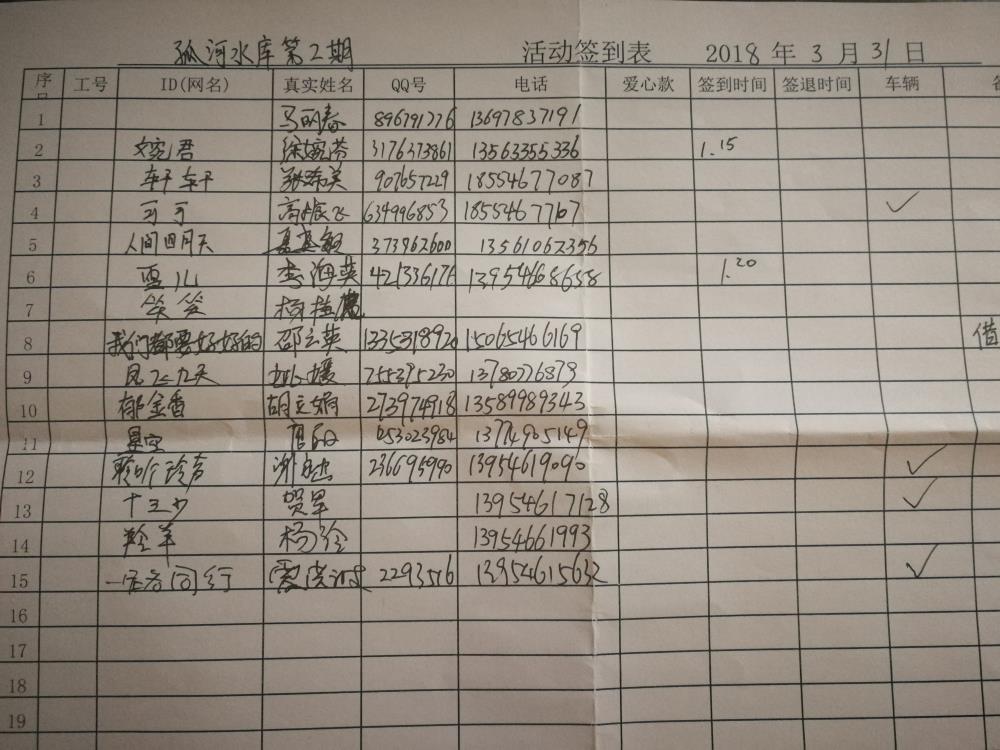 孤河水库第2期 活动签到表 2018 年 3 月 31 日
序号 工号 ID(网名) 真实姓名 QQ号 电话 爱心款 签到时间 签退时间 车辆
1 马丽春 896791776 13697837191
2 婉君 徐婉芬 3176373861 13563355336 1.15
3 轩轩 907657229 18554677087
4 可可 634996853 18554677107 ✓
5 人间四月天 373962600 13561062356
6 蓝儿 李海英 421336176 13954668658 1.20
7 笑笑
8 我们都要好好的 邵云英 1335318920 15065466169 借
9 凤飞九天 755395230 13780776879
10 郁金香 胡立娟 273974918 13589989343
11 星空 053023984 13774905149
12 聆听铃声 236695990 13954619090 ✓
13 十三少 贺军 13954617128 ✓
14 羚羊 杨玲 13954661993
15 一路同行 2293516 13954615632 ✓
16
17
18
19